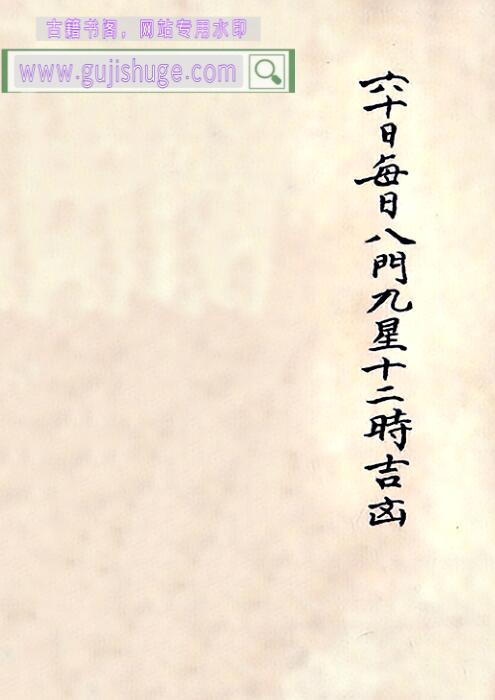 古籍书阁，网站专用水印
www.gujishuge.com
六十日每日八門九星十二時吉凶